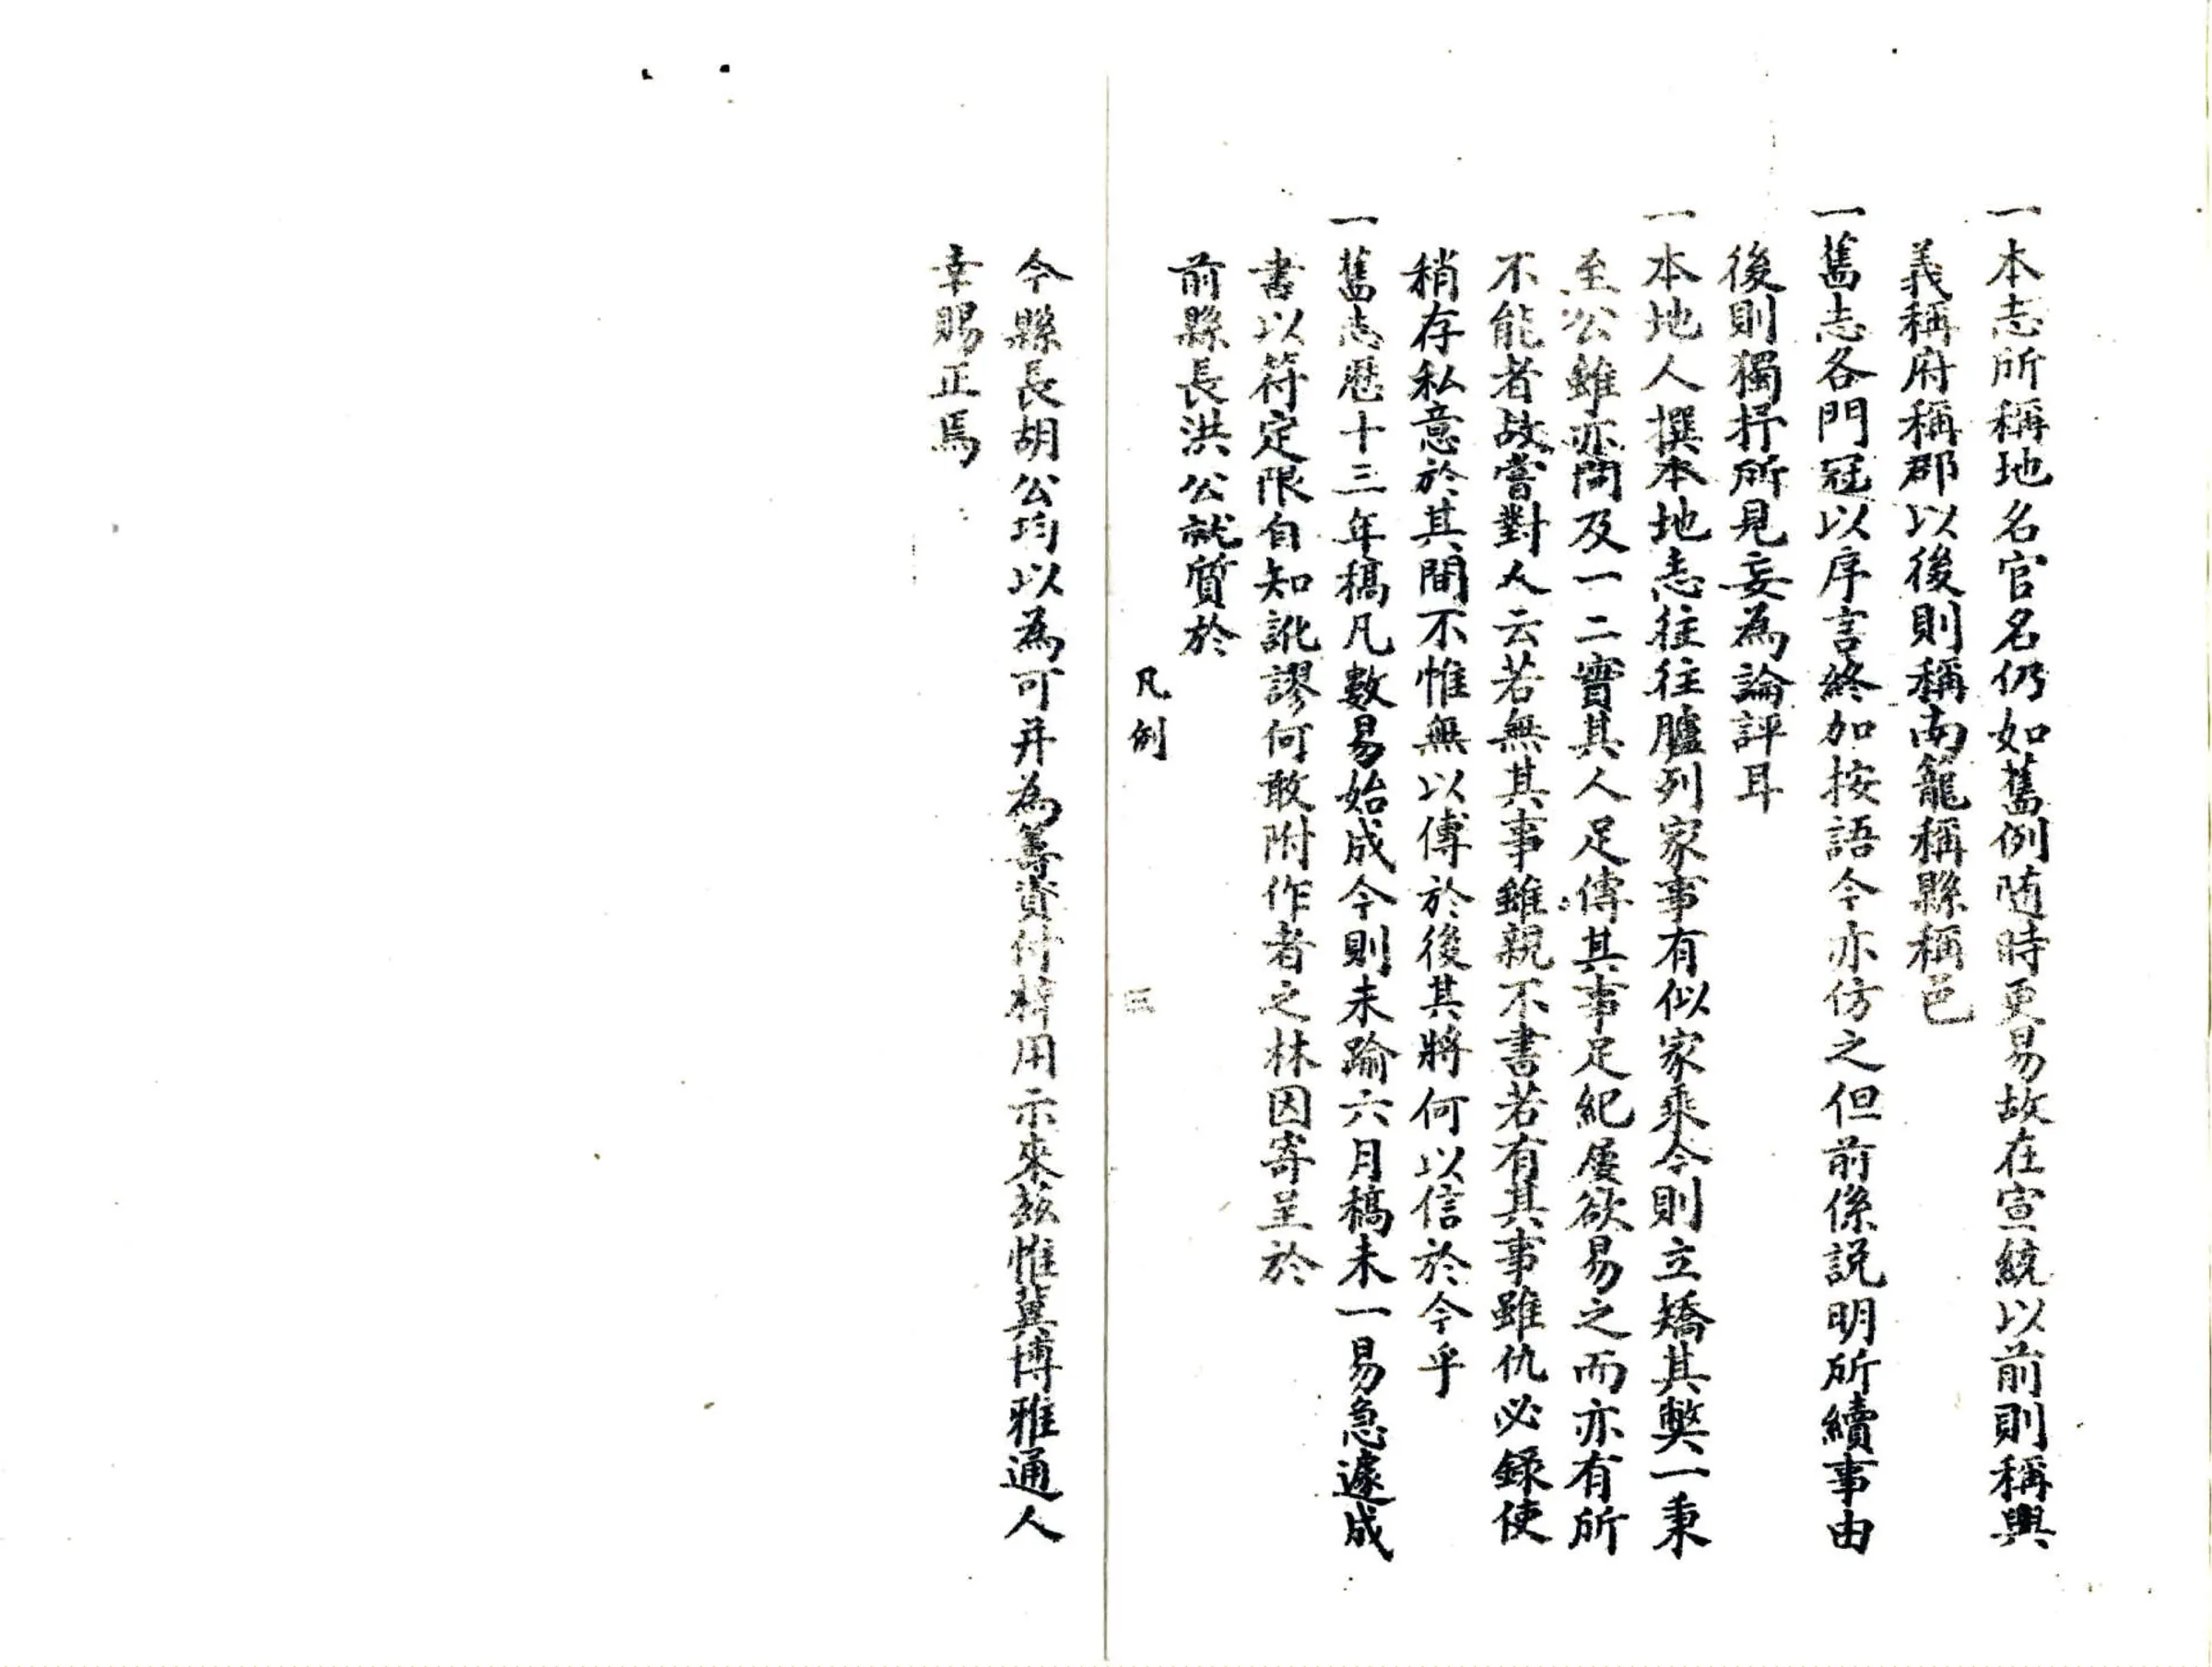 一本志所稱地名官名仍如舊例随時更易故在宣統以前則稱興
義稱府稱郡以後則稱南籠稱縣稱邑
一舊志各門冠以序言終加按語今亦仿之但前係説明所續事由
後則獨抒所見妄為論評耳
一本地人撰本地志往往臚列家事有似家乘今則立矯其弊一秉
至公雖亦間及一二實其人足傳其事足紀屢欲易之而亦有所
不能者故嘗對人云若無其事雖親不書若有其事雖仇必録使
稍存私意於其間不惟無以傳於後其將何以信於今乎
一舊志歷十三年稿凡數易始成今則未踰六月稿未一易急遽成
書以符定限自知訛謬何敢附作者之林因寄呈於
前縣長洪公就質於
凡例
三
今縣長胡公均以為可并為籌資付梓用示來兹惟冀博雅通人
幸賜正焉